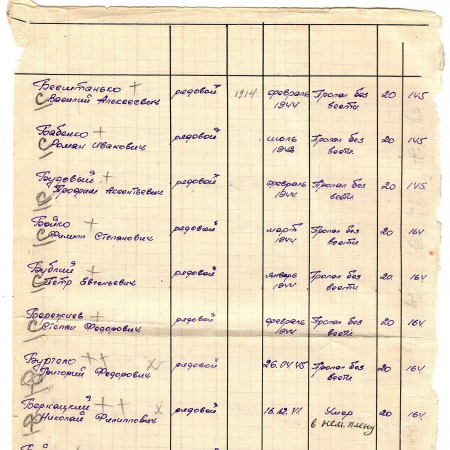 Бесштанько рядовой 1914 февраль Пропал без 20 145
Василий Алексеевич 1944 вести
Бабенко рядовой июль Пропал без 20 145
Роман Иванович 1943 вести.
Будовый рядовой февраль Пропал без 20 145
1944 вести.
Бойко рядовой март Пропал без 20 164
Филипп Степанович 1944 вести.
Бублий рядовой январь Пропал без 20 164
Петр Евгеньевич 1944 вести
Бережнев рядовой февраль Пропал без 20 164
Степан Федорович 1944 вести
рядовой 26.04.45 Пропал без 20 164
Григорий Федорович вести
Беркацкий рядовой Умер 20 164
Николай Филиппович в нем. плену